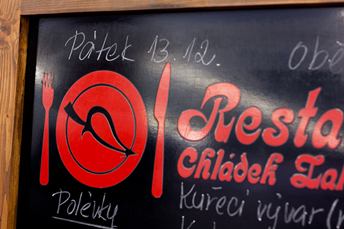 Pátek 13.12.
Resta
Chládek
Polévky
Kuřecí vývar